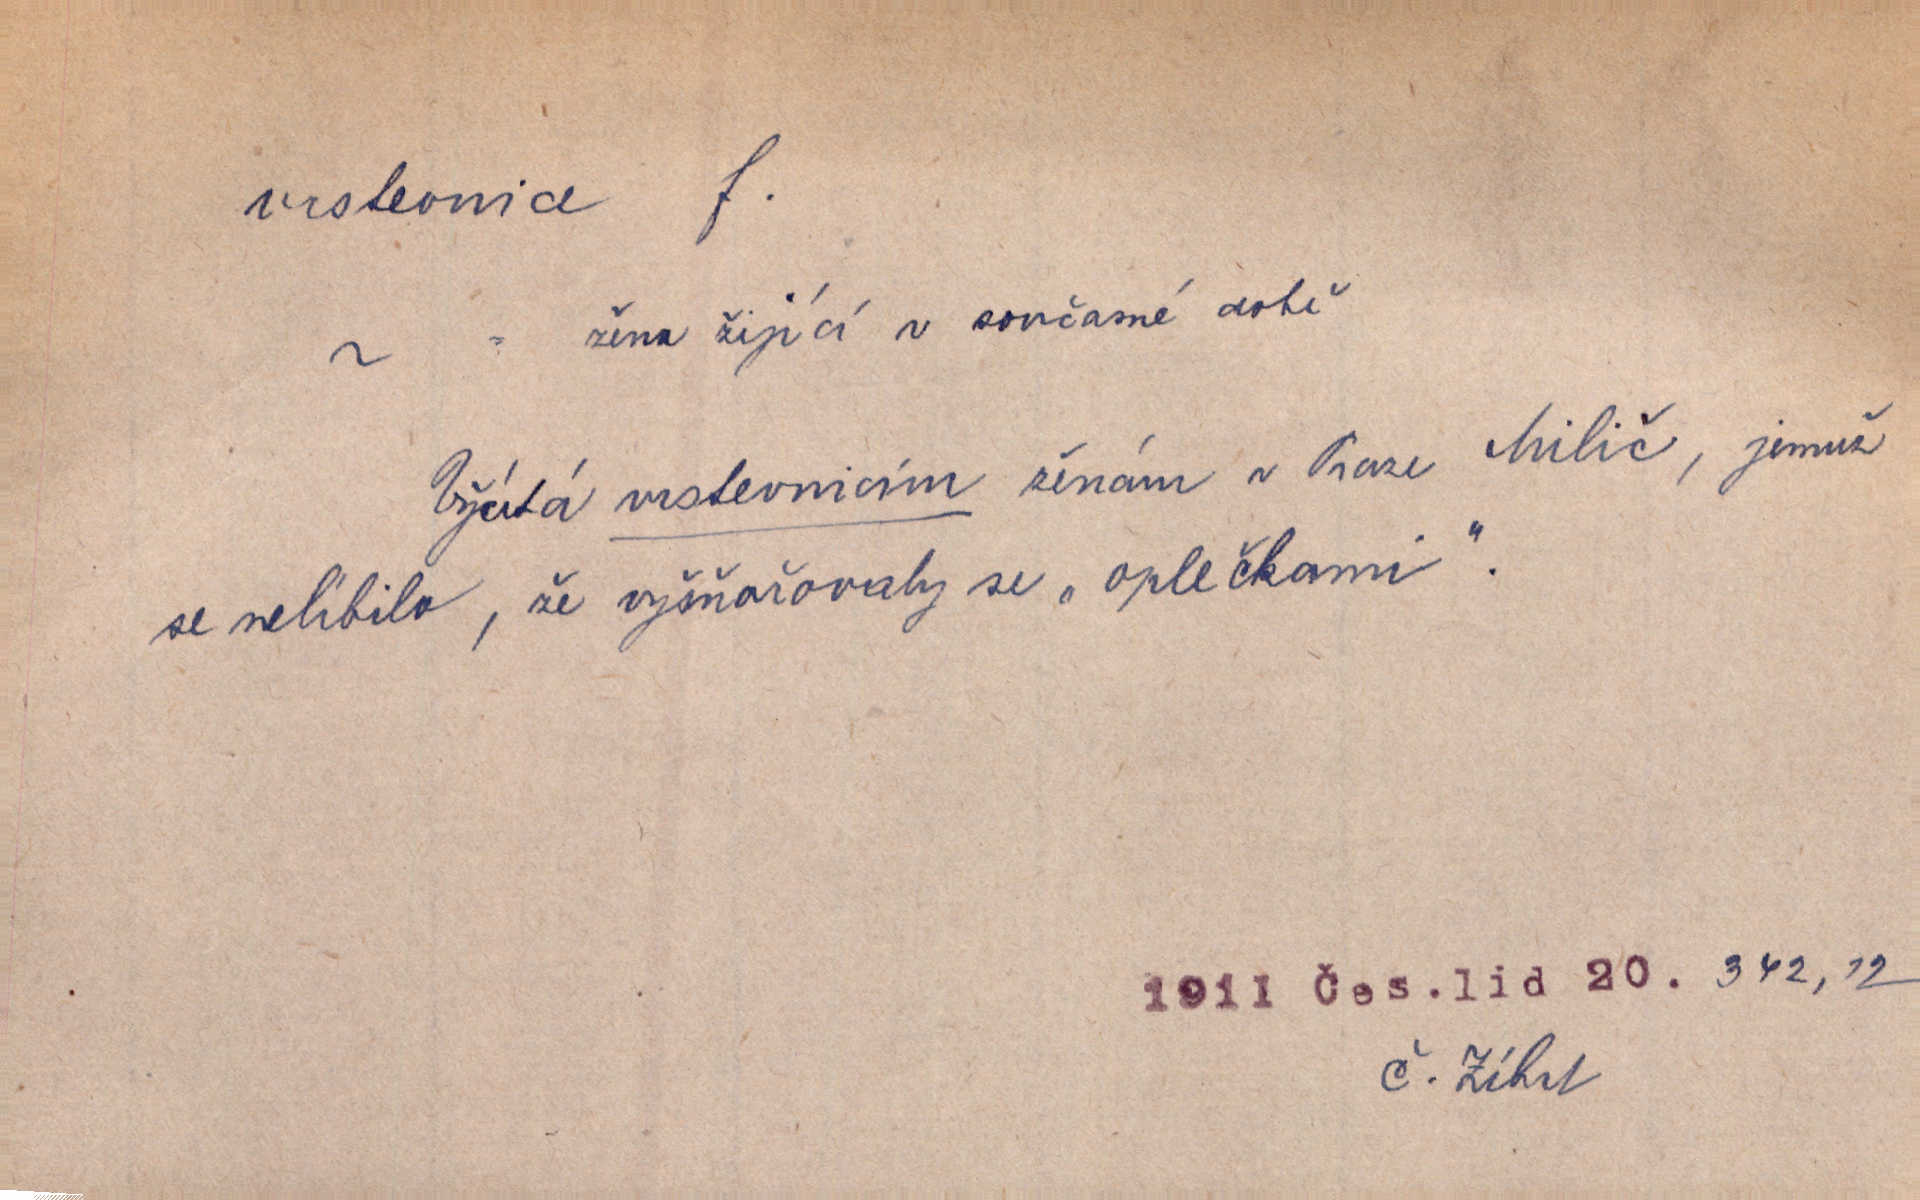 vrstevnice f.
~ = žena žijící v současné době
Vyčítá vrstevnicím ženám v Praze Milič, jemuž
se nelíbilo, že vyšňořovaly se „oplečkami“.
1911 Čes.lid 20. 342, 12
Č. Zíbrt